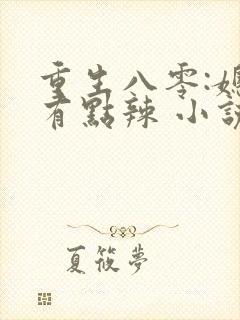 重生八零:媳
有點辣 小說
夏筱夢